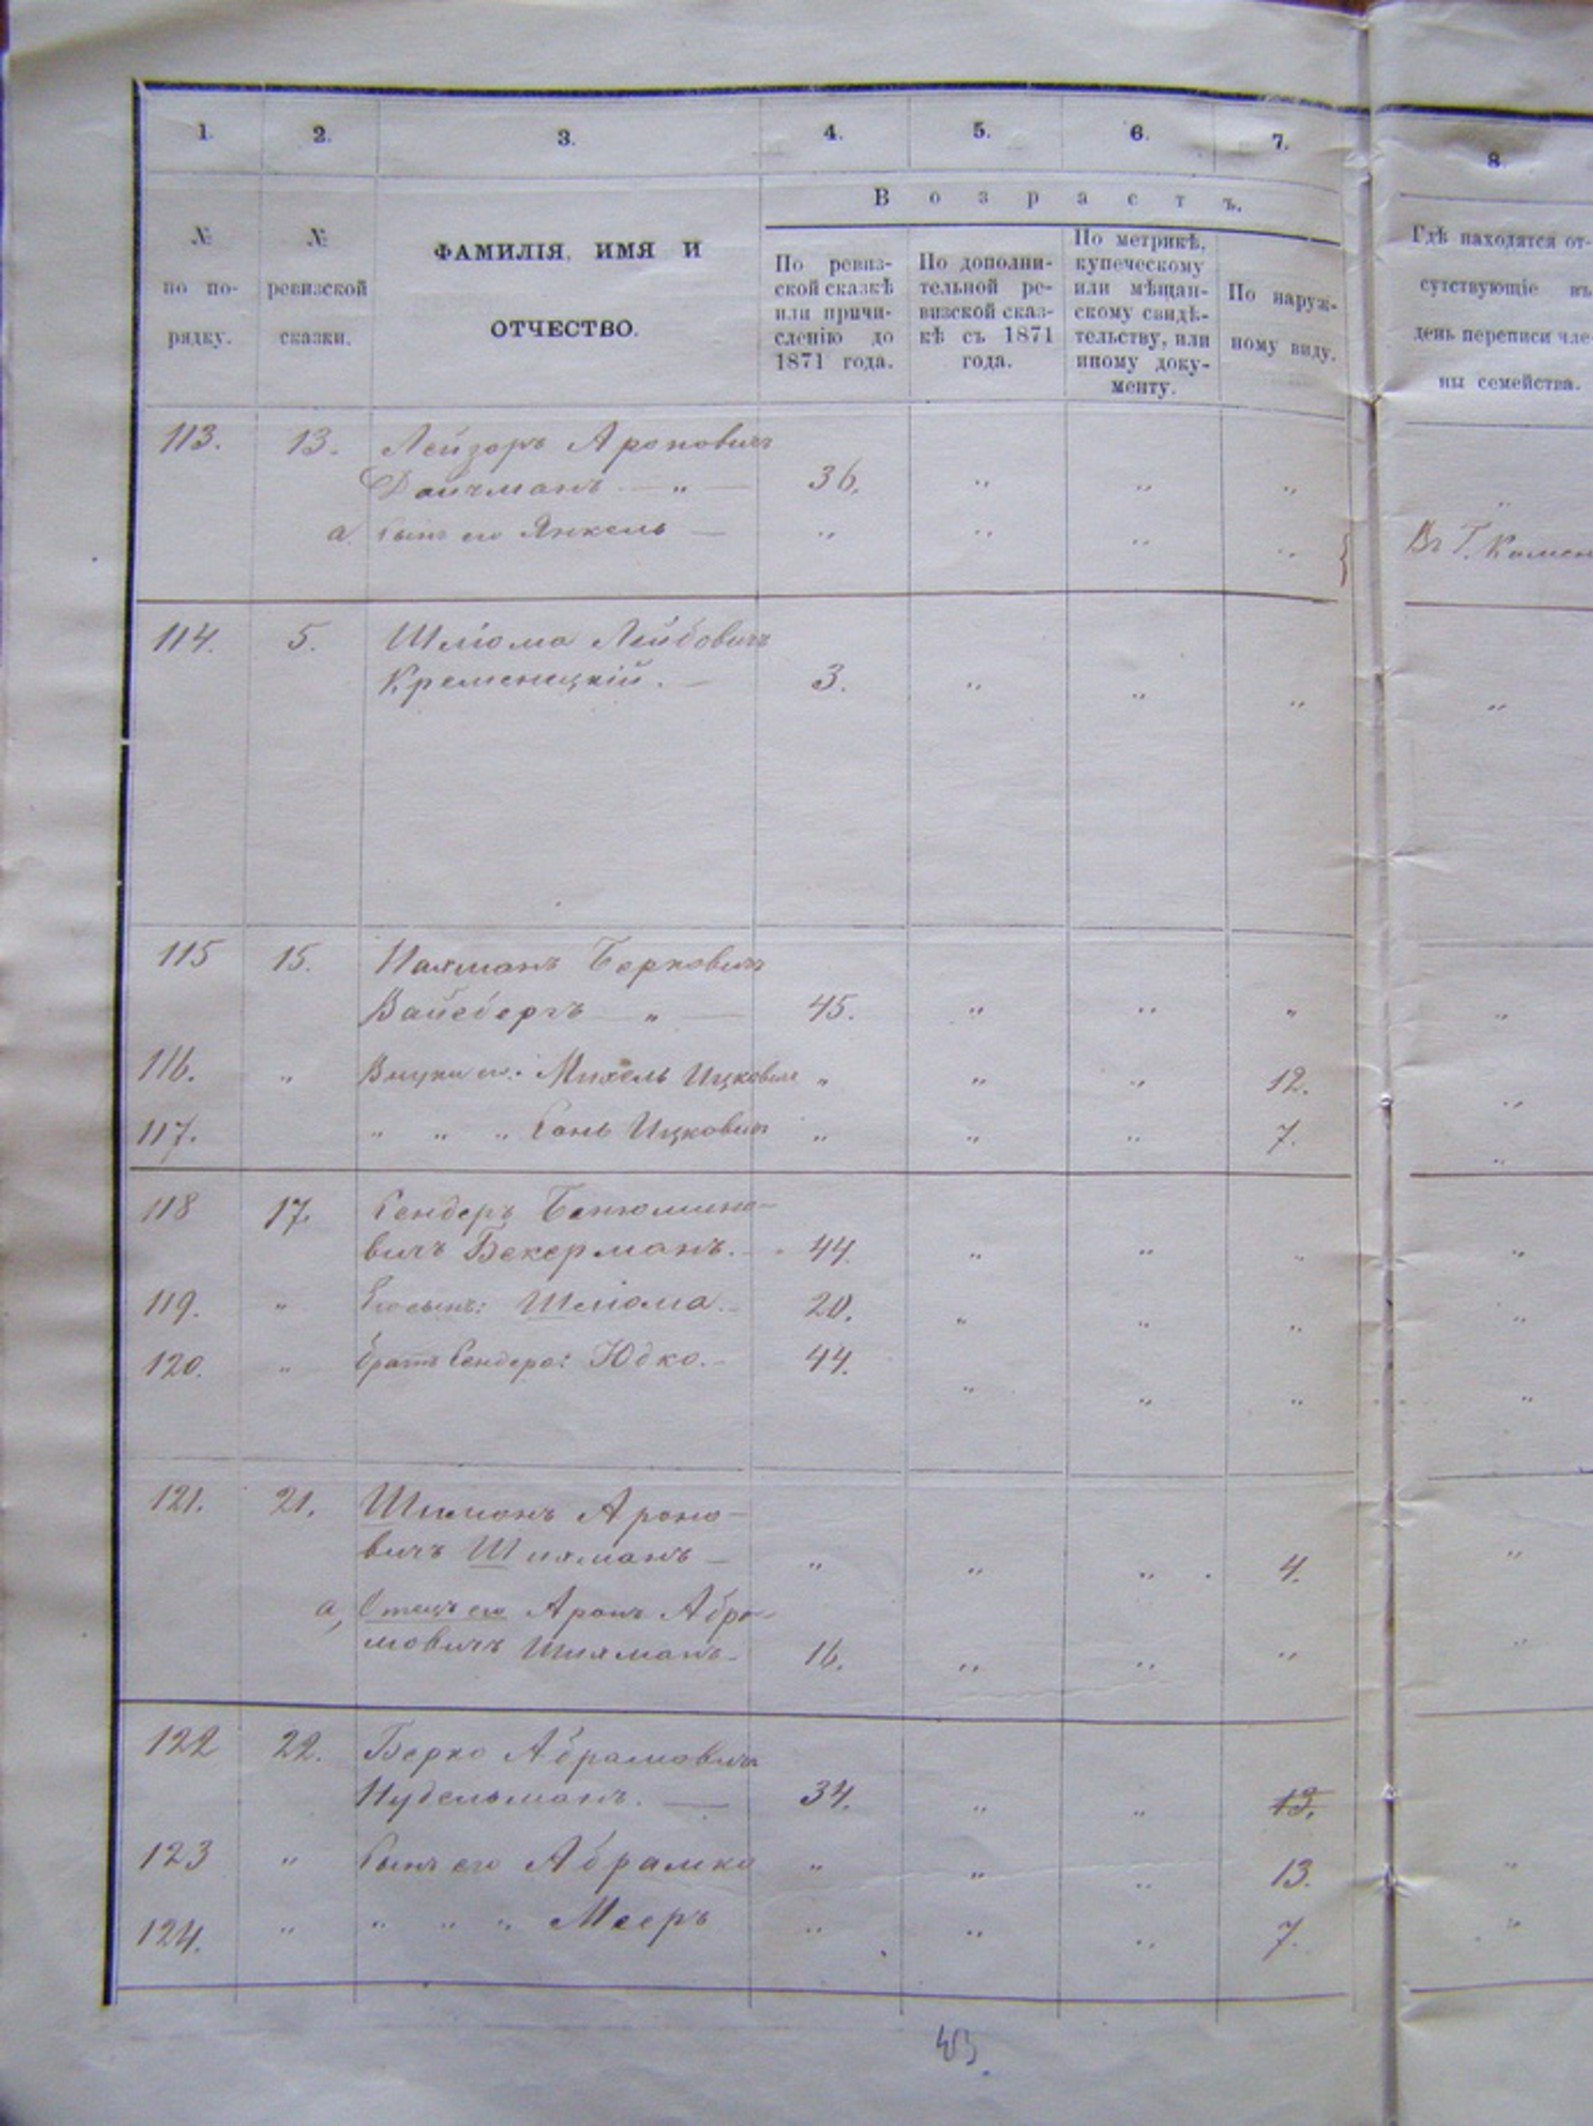 1. 2. 3. 4. 5. 6. 7. 8.
№ по порядку.
№ ревизской сказки.
ФАМИЛІЯ, ИМЯ И
ОТЧЕСТВО.
Возрастъ.
По ревиз-
ской сказкѣ
или причи-
сленію до
1871 года.
По дополни-
тельной ре-
визской сказ-
кѣ съ 1871
года.
По метрикѣ,
купеческому
или мѣщан-
скому свидѣ-
тельству, или
иному доку-
менту.
По наруж-
ному виду.
Гдѣ находятся от-
сутствующіе въ
день переписи чле-
ны семейства.
113. 13. Лейзоръ Ароновичъ
Дайчманъ — „ — 36. „ „ „ „
а. Сынъ его Янкель — „ „ „ „ Въ Г. Камен
114. 5. Шлiома Лейбовичъ
Кременецкій. — 3. „ „ „ „
115 15. Нахманъ Берковичъ
Вайсбергъ — „ — 45. „ „ „ „
116. „ Внуки его: Михель Ицковичъ „ „ „ 12. „
117. „ „ „ Сань Ицковичъ „ „ „ 7. „
118 17. Сендеръ Бенюмино-
вичъ Бекерманъ. - 44. „ „ „ „
119. „ Его сынъ: Шлiома. - 20. „ „ „ „
120. „ Братъ Сендера: Юдко. - 44. „ „ „ „
121. 21. Шимонъ Ароно-
вичъ Шихманъ — „ „ „ 4. „
а, Отецъ его Аронъ Абра-
мовичъ Шихманъ - 16. „ „ „ „
122 22. Берко Абрамовичъ
Нудельманъ. — 34. „ „ 13.
123 „ Сынъ его Абрамко „ „ „ 13. „
124. „ „ „ „ Мееръ „ „ „ 7. „